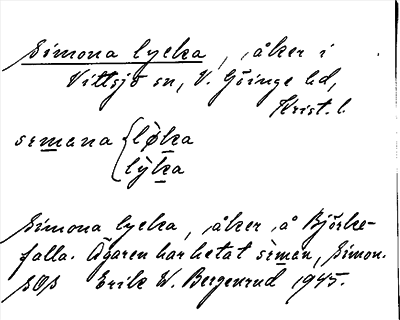 Simona lycka, åker i
Vittsjö sn, V. Göinge hd,
Krist. l.
semana { løka
lyka
Simona lycka, åker å Björke-
falla. Ägaren har hetat seman, Simon.
SOS Erik W. Bergenrud 1945.